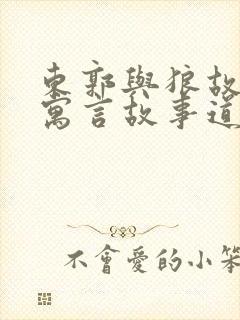 東郭與狼故
寓言故事道
不會愛的小笨